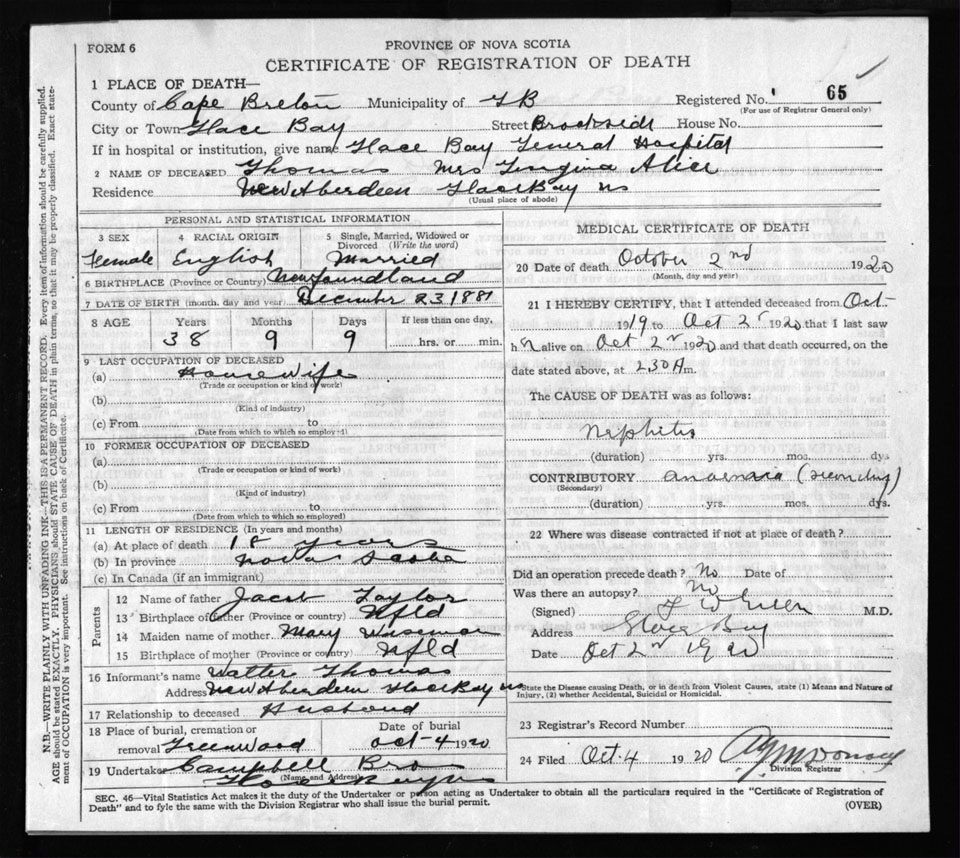 FORM 6
PROVINCE OF NOVA SCOTIA
CERTIFICATE OF REGISTRATION OF DEATH
1 PLACE OF DEATH—
County of Cape Breton Municipality of GB Registered No. 65
(For use of Registrar General only)
City or Town Glace Bay Street Brookside House No.
If in hospital or institution, give name Glace Bay General Hospital
2 NAME OF DECEASED Thomas Mrs Alice
Residence New Aberdeen Glace Bay NS
(Usual place of abode)
PERSONAL AND STATISTICAL INFORMATION
3 SEX 4 RACIAL ORIGIN 5 Single, Married, Widowed or Divorced (Write the word)
Female English Married
6 BIRTHPLACE (Province or Country) Newfoundland
7 DATE OF BIRTH (month, day and year) December 23 1881
8 AGE Years Months Days If less than one day,
38 9 9 hrs. or min.
9 LAST OCCUPATION OF DECEASED
(a) Housewife
(Trade or occupation or kind of work)
(b)
(Kind of industry)
(c) From to
(Date from which to which so employed)
10 FORMER OCCUPATION OF DECEASED
(a)
(Trade or occupation or kind of work)
(b)
(Kind of industry)
(c) From to
(Date from which to which so employed)
11 LENGTH OF RESIDENCE (In years and months)
(a) At place of death 18 years
(b) In province Nova Scotia
(c) In Canada (if an immigrant)
Parents
12 Name of father Jacob Taylor
13 Birthplace of father (Province or country) Nfld
14 Maiden name of mother Mary Wiseman
15 Birthplace of mother (Province or country) Nfld
16 Informant's name Walter Thomas
Address New Aberdeen Glace Bay NS
17 Relationship to deceased Husband
18 Place of burial, cremation or Date of burial
removal Greenwood Oct-4 1920
19 Undertaker Campbell Bro
(Name and Address)
Glace Bay NS
MEDICAL CERTIFICATE OF DEATH
20 Date of death October 2nd 1920
(Month, day and year)
21 I HEREBY CERTIFY, that I attended deceased from Oct
1919 to Oct 2nd 1920 that I last saw
h alive on Oct 2nd 1920 and that death occurred, on the
date stated above, at 2.30 A m.
The CAUSE OF DEATH was as follows:
Nephritis
(duration) yrs. mos. dys
CONTRIBUTORY (secondary)
(Secondary)
(duration) yrs. mos. dys.
22 Where was disease contracted if not at place of death?
Did an operation precede death? No Date of
Was there an autopsy? No
(Signed) M.D.
Address Glace Bay
Date Oct 2nd 1920
State the Disease causing Death, or in death from Violent Causes, state (1) Means and Nature of
Injury, (2) whether Accidental, Suicidal or Homicidal.
23 Registrar's Record Number
24 Filed Oct. 4 1920
Division Registrar
SEC. 46—Vital Statistics Act makes it the duty of the Undertaker or person acting as Undertaker to obtain all the particulars required in the "Certificate of Registration of
Death" and to fyle the same with the Division Registrar who shall issue the burial permit.
(OVER)
N.B.—WRITE PLAINLY WITH UNFADING INK—THIS IS A PERMANENT RECORD. Every item of information should be carefully supplied.
AGE should be stated EXACTLY. PHYSICIANS should STATE CAUSE OF DEATH in plain terms, so that it may be properly classified. Exact state-
ment of OCCUPATION is very important. See instructions on back of Certificate.